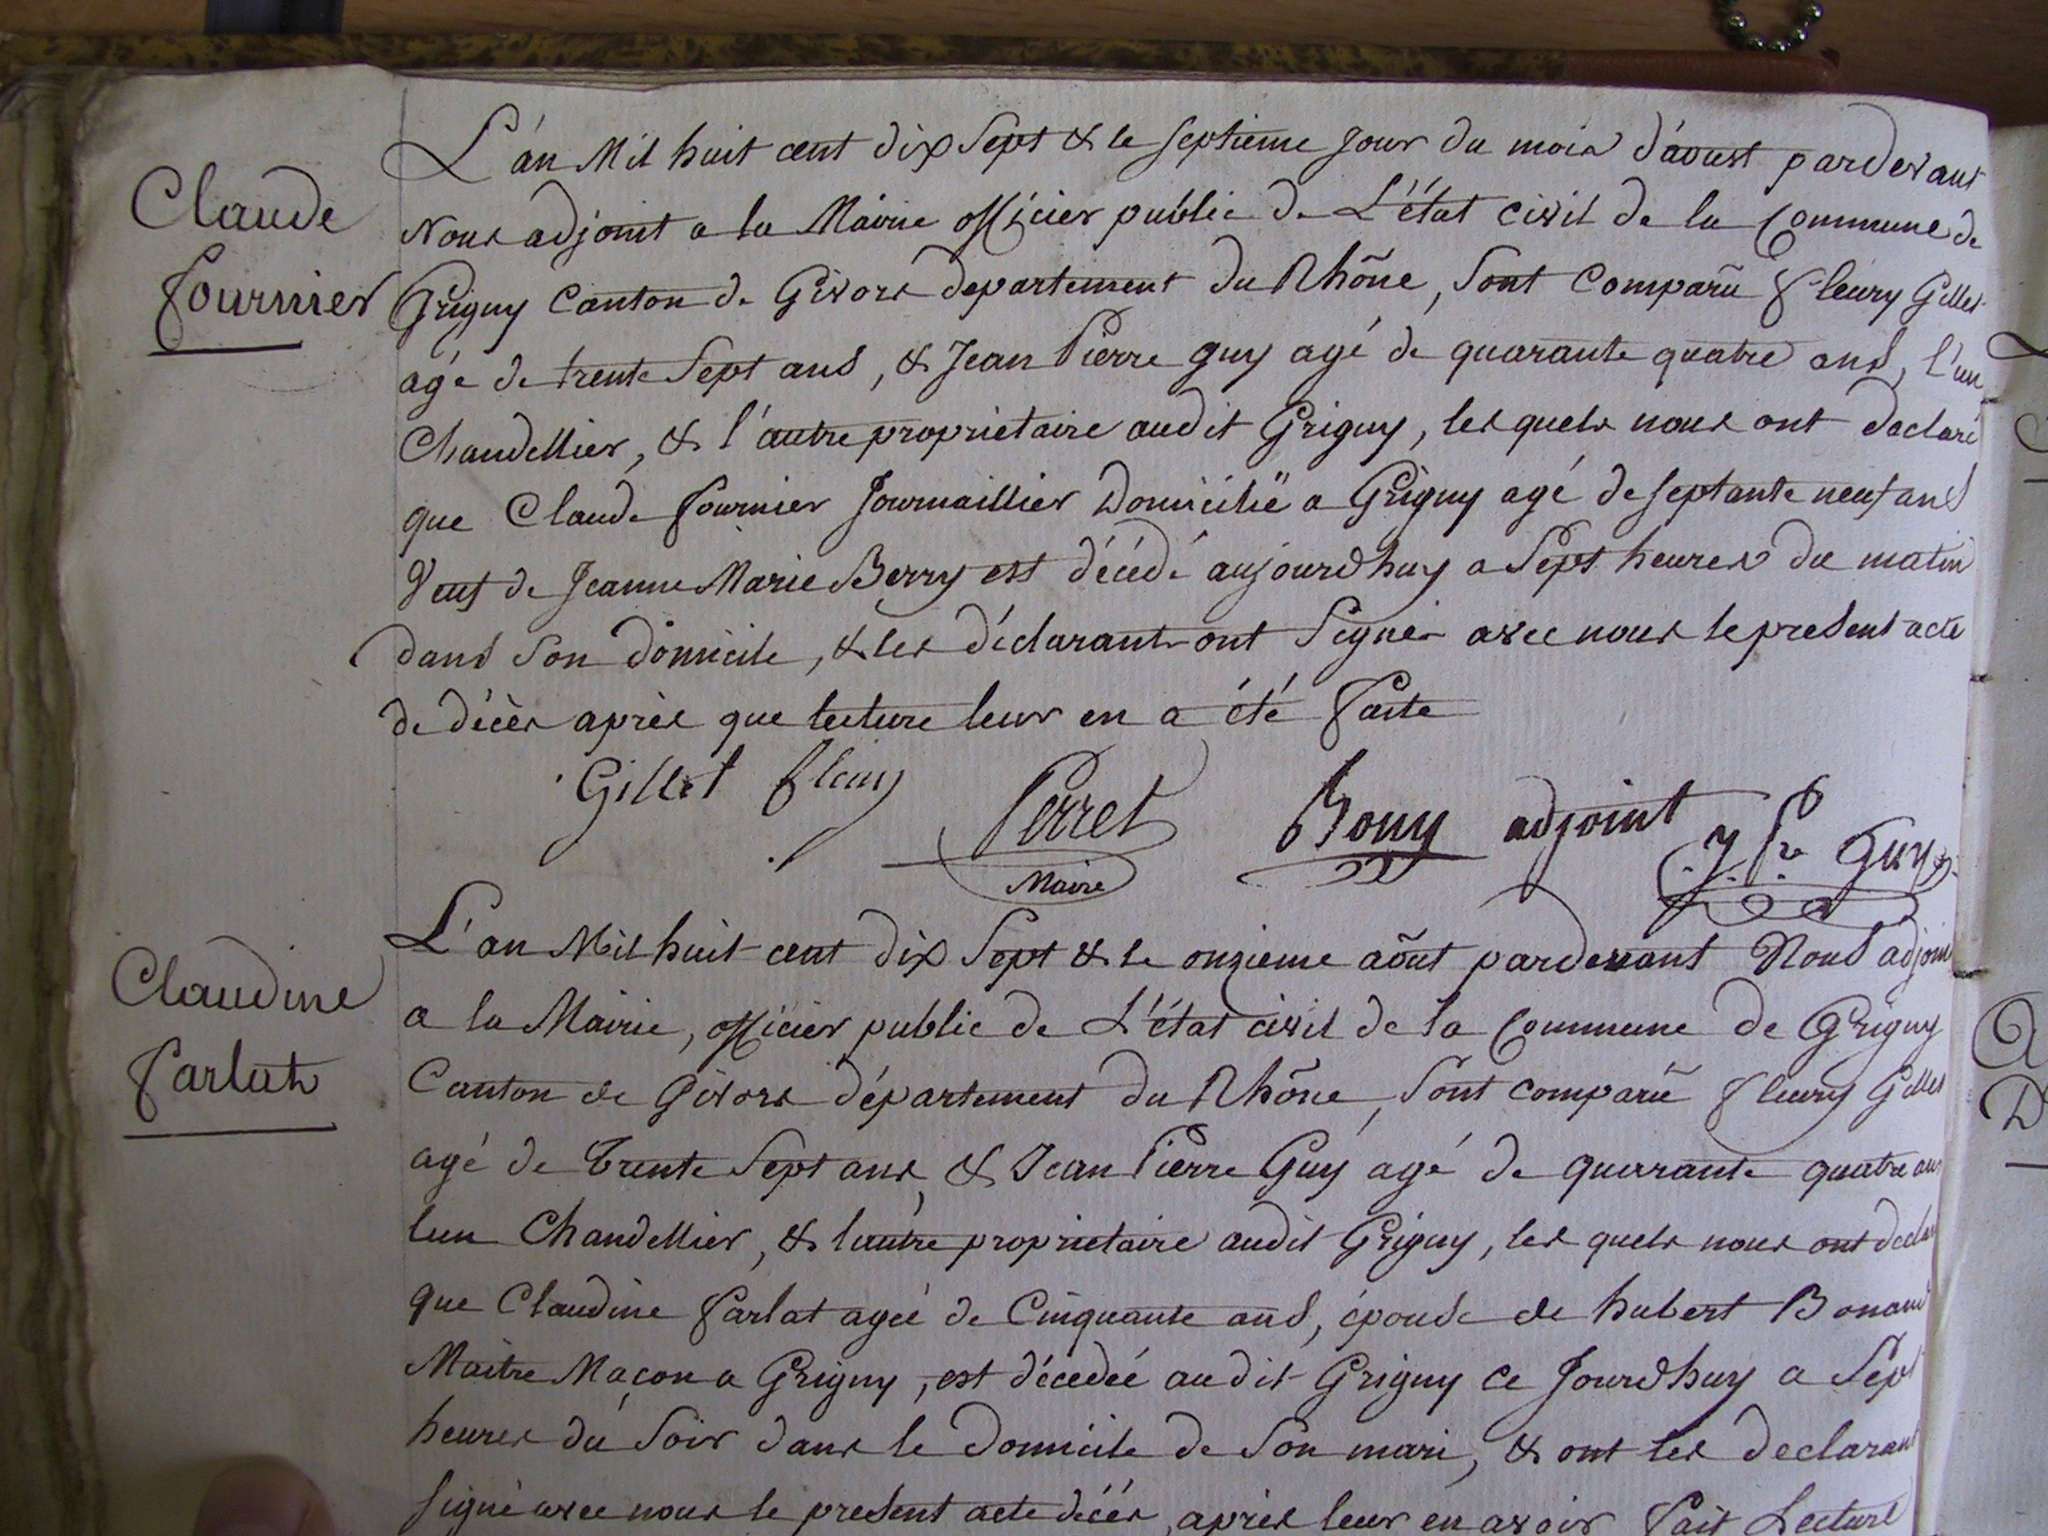 Claude
fournier
L'an Mil huit cent dix Sept & le septieme Jour du mois d'aoust pardevant
Nous adjoint a la Mairie officier public de L'état civil de la Commune de
Grigny Canton de Givors departement du Rhône, Sont Comparû fleury Gillet
agé de trente Sept ans, & Jean Pierre guy agé de quarante quatre ans, l'un
Chandellier, & l'autre proprietaire audit Grigny, les quels nous ont declaré
que Claude fournier Journaillier Domicilié a Grigny agé de septante neuf ans
Veuf de Jeanne Marie Berry est décédé aujourdhuy a Sept heures du matin
dans Son domicile, & les déclarant ont Signé avec nous le present acte
de décès après que lecture leur en a été faite
Gillet fleury
Perret
Maire
Bony adjoint
J. Pre Guy
Claudine
farlat
L'an Mil huit cent dix Sept & le onzieme aôut pardevant Nous adjoint
a la Mairie, officier public de L'état civil de la Commune de Grigny
Canton de Givors département du Rhône, Sont comparû fleury Gillet
agé de trente Sept ans, & Jean Pierre Guy agé de quarante quatre ans
lun Chandellier, & lautre proprietaire audit Grigny, les quels nous ont declar
que Claudine farlat agée de Cinquante ans, épouse de hubert Bonand
Maitre Maçon a Grigny, est décedée audit Grigny ce Jourdhuy a Sept
heures du Soir dans le domicile de Son mari, & ont les declarant
signé avec nous le present acte décés, après leur en avoir fait Lecture